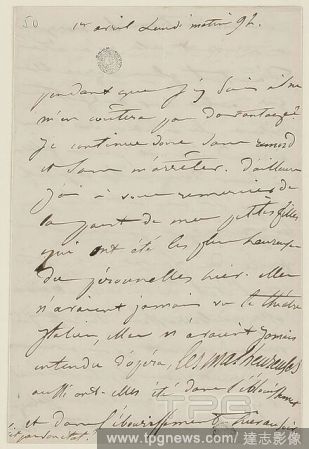 50
1er avril Lundi matin 9h.
pendant que j'y suis il ne
m'en coûtera pas davantage
Je continue donc sans remord
et sans m'arrêter. D'ailleurs
j'ai à vous remercier de
la part de mes petites filles
qui ont été les plus heureuses
du péronnelles hier. Elles
n'avaient jamais vu le théâtre
Italien, elles n'avaient jamais
entendu d'opéra, les malheureuses
aussi ont-elles été dans l'éblouissement
et dans l'ébourissement
TPG
www.tpgnews.com / 達志影像